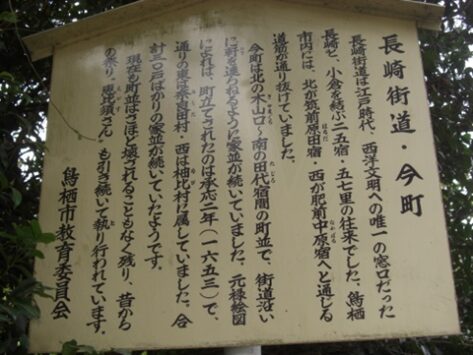 長崎街道・今町
長崎街道は江戸時代、西洋文明への唯一の窓口だった
長崎と、小倉を結ぶ二五宿・五七里の往来でした。鳥栖
市内には、北が筑前原田宿・西が肥前中原宿へと通じる
道筋が通り抜けていました。
今町は北の木山口〜南の田代宿間の町並で、街道沿い
に軒を連ねるように家並が続いていました。元禄絵図
によれば、町立てされたのは承応二年(一六五三)で、
通りの東は永吉田村・西は柚比村に属していました。合
計三〇戸ばかりの家並が続いていたようです。
現在も町並はさほど壊されることもなく残り、昔から
の祭り〝恵比須さん〟も引き続いて執り行われています。
鳥栖市教育委員会